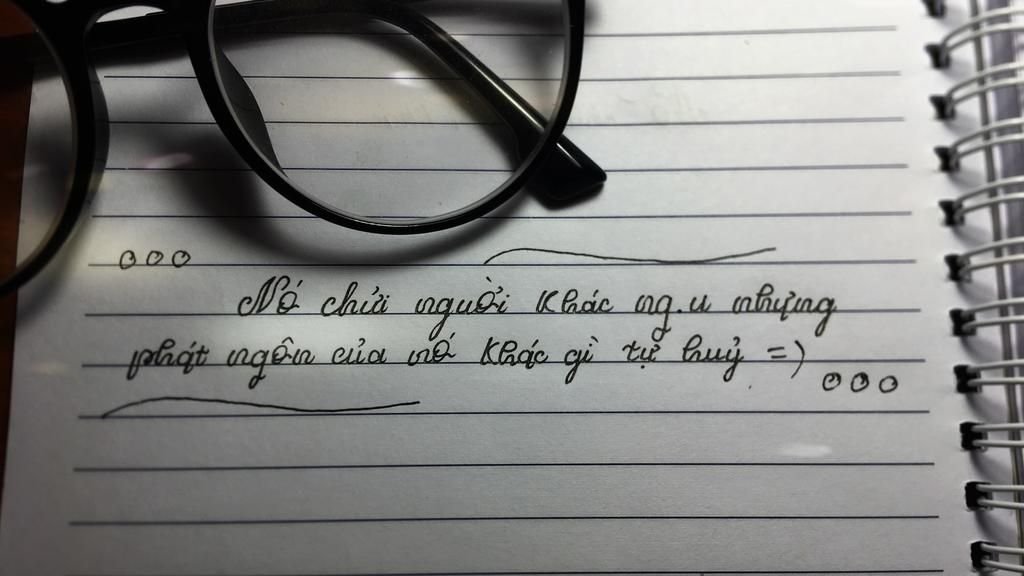 Nó chửi người khác ng.u nhưng
phát ngôn của nó khác gì tự huỷ =)